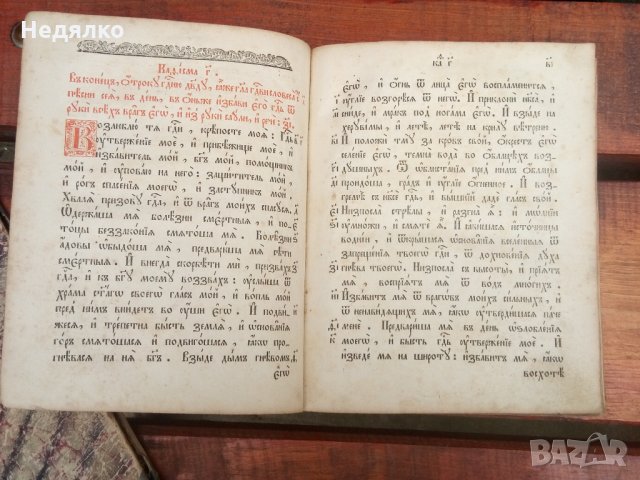 Недялко
Каѳісма г҃.
Въ конецъ, ѻтроку гдⷭ҇ню дв҃ду, ꙗже гл҃а гдⷭ҇ви словеса
пѣсни сеѧ̀, въ день, въ ѻньже избави єго гдⷭ҇ь ѿ
руки всѣхъ врагъ єгѡ̀, и из руки саули, и рече: з҃і.
Возлюблю тѧ гдⷭ҇и, крѣпосте моѧ: гдⷭ҇ь
ѹтвержденїе моѐ, и прибѣжище моѐ, и
избавитель мой, бг҃ъ мой, помощникъ
мой, и ѹповаю на него: защититель мой,
и рогъ спасенїѧ моегѡ̀, и заступникъ мой.
Хвалѧ призову гдⷭ҇а, и ѿ врагъ моихъ спасусѧ.
Ѡдержаша мѧ болѣзни смертныѧ, и по-
тоцы беззаконїѧ смѧтоша мѧ. Болѣзни
адовы ѡбыдоша мѧ, предвариша мѧ сѣти
смертныѧ. И внегда скорбѣти ми, призвахъ
гдⷭ҇а, и къ бг҃у моему воззвахъ: ѹслыша ѿ
храма ст҃агѡ своегѡ гласъ мой, и вопль мой
пред нимъ внидетъ во ѹшы єгѡ̀. И подви-
жесѧ, и трепетна бысть землѧ, и ѡснованїѧ
горъ смѧтошасѧ, и подвигошасѧ, ꙗкѡ про-
гнѣвасѧ на нѧ бг҃ъ. Взыде дымъ гнѣвомъ
єгѡ̀
каѳ г҃
єгѡ̀, и огнь ѿ лица єгѡ̀ воспламенитсѧ,
и ѹглїе возгорѣсѧ ѿ негѡ̀. И приклони нб҃са, и
сниде, и мракъ под ногама єгѡ̀. И взыде на
херувимы, и летѣ, летѣ на крилу вѣтрню.
И положи тму за кровъ свой, ѡкрестъ єгѡ̀
селенїе єгѡ̀, темна вода во ѡблацѣхъ воз-
душныхъ. Ѿ ѡблистанїѧ пред нимъ ѡблацы
проидоша, градъ и ѹглїе ѻгненное. И возгре-
мѣ съ нб҃се гдⷭ҇ь, и вышнїй даде гласъ свой.
Низпосла стрѣлы, и разгна ѧ̀: и молнїи
ѹмножи, и смѧте ѧ̀. И ꙗвишасѧ источницы
воднїи, и ѿкрышасѧ ѡснованїѧ вселенныѧ ѿ
запрещенїѧ твоегѡ гдⷭ҇и, ѿ дохновенїѧ духа
гнѣва твоегѡ̀. Низпосла съ высоты, и прїѧтъ
мѧ, воспрїѧтъ мѧ ѿ водъ многихъ.
Избавитъ мѧ ѿ врагѡвъ моихъ сильныхъ, и
ѿ ненавидѧщихъ мѧ, ꙗкѡ ѹтвердишасѧ паче
мене. Предвариша мѧ въ день ѡзлобленїѧ
моегѡ, и бысть гдⷭ҇ь ѹтвержденїе моѐ. И
изведе мѧ на широту: избавитъ мѧ, ꙗкѡ
восхотѣ
BAZAR